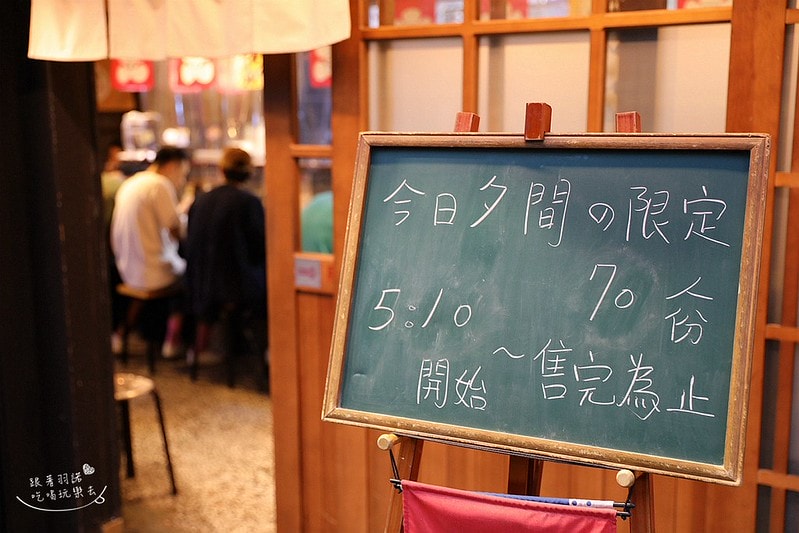 今日夕間の限定
5:10 70份
開始~售完為止
跟著羽諾
吃喝玩樂去